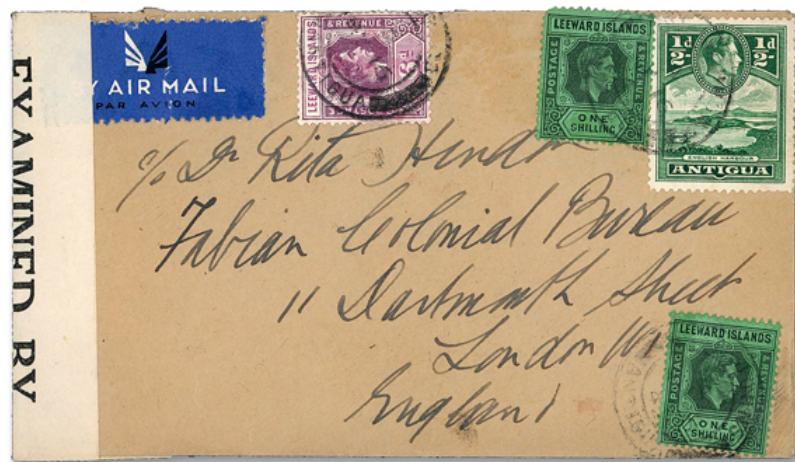 EXAMINED BY
BY AIR MAIL
PAR AVION
LEEWARD ISLANDS
& REVENUE
LEEWARD ISLANDS
POSTAGE
& REVENUE
ONE
SHILLING
½d ½d
ENGLISH HARBOUR
ANTIGUA
c/o Dr Rita Hinden
Fabian Colonial Bureau
11 Dartmouth Street
London W1
England
LEEWARD ISLANDS
POSTAGE
& REVENUE
ONE
SHILLING